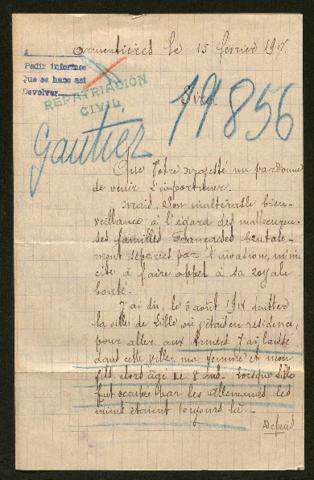 Armentières le 15 février 191
A
Pedir informes
Que se hace asi
Devolver
REPATRIACIÓN
CIVIL
19856
Sire
Gautier
Que Votre Majesté me pardonne
de venir l'importuner.
Mais, Son inaltérable bien-
veillance à l'égard des malheureu-
ses familles Françaises brutale-
ment séparées par l'invasion, m'in
cite à faire appel à sa royale
bonté.
J'ai dû, le 3 août 1914 quitter
la ville de Lille où j'étais en résidence,
pour aller aux Armées. J'ai laissé
dans cette ville ma femme et mon
fils alors âgé de 8 ans. Lorsque Lille
fut occupé par les Allemands, les
miens étaient toujours là.
Depuis